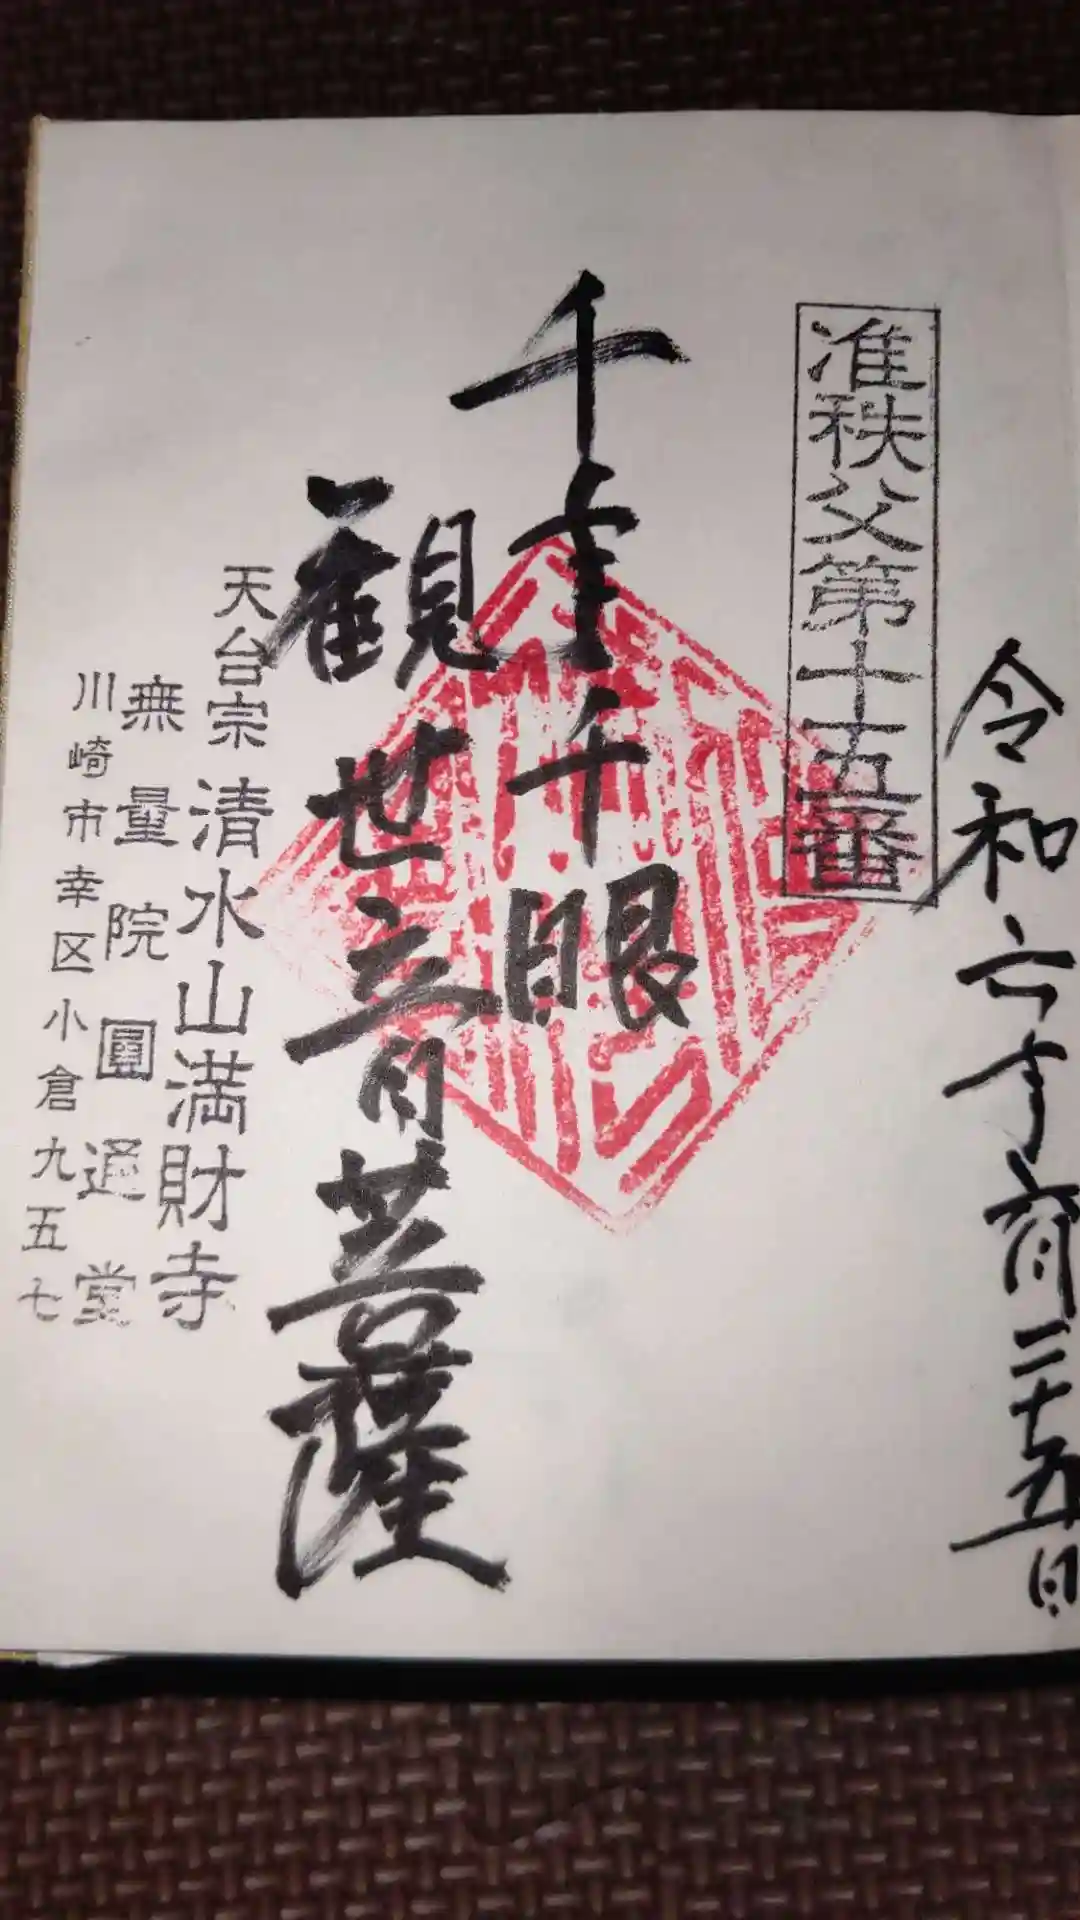 令和六年六月二十五日
准秩父第十五番
千手千眼
観世音菩薩
天台宗 清水山満財寺
無量院圓通堂
川崎市幸区小倉九五七